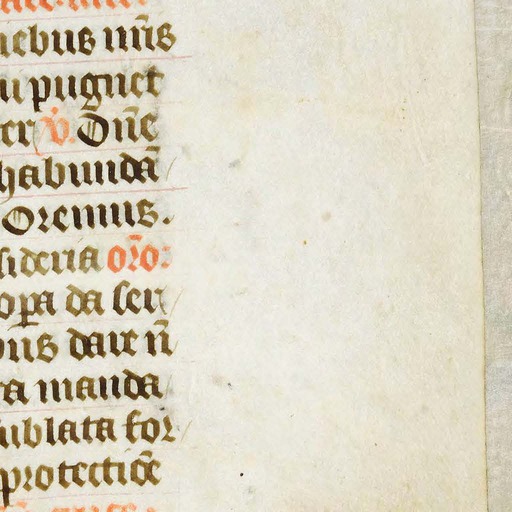 iebus nr̄is
u pugnet
er v̄. Dn̄e
habundā
Oremus.
sideria or̄o:
oꝑa da ser
bus dare n̄
ra manda
sublata for
protectiōe